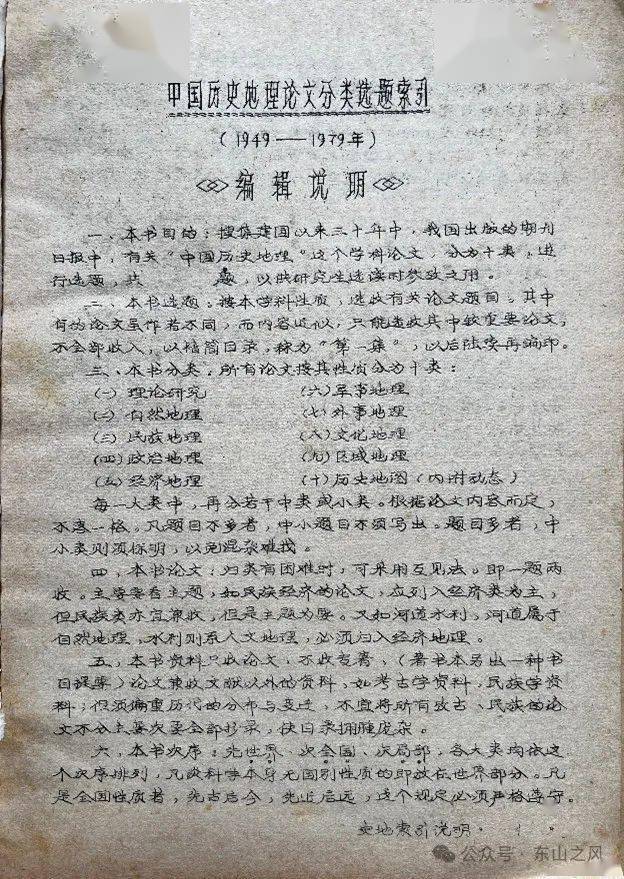 中国历史地理论文分类选题索引
（1949——1979年）
编辑说明
一、本书目的：搜集建国以来三十年中，我国出版的期刊
日报中，有关“中国历史地理”这个学科论文，分为十类，进
行选题，共　　　题，以供研究生选读时参考之用。
二、本书选题：按本学科性质，选收有关论文题目。其中
有的论文虽作者不同，而内容近似，只能选收其中较重要论文，
不全部收入，以精简目录，称为“第一集”，以后陆续再编印。
三、本书分类：所有论文按其性质分为十类：
(一)理论研究　(六)军事地理
(二)自然地理　(七)外事地理
(三)民族地理　(八)文化地理
(四)政治地理　(九)区域地理
(五)经济地理　(十)历史地图（内附动态）
每一大类中，再分若干中类或小类。根据论文内容而定，
不拘一格。凡题目不多者，中小题目不须写出。题目多者，中
小类则须标明，以免混杂难找。
四、本书论文：归类有困难时，可采用互见法。即一题两
收。主要要看主题，如民族经济的论文，应列入经济类为主，
但民族类亦宜兼收，但是主题为要。又如河道水利，河道属于
自然地理，水利则系人文地理，必须归入经济地理。
五、本书资料只收论文，不收专著、（著书本另出一种书
目提要）论文兼收文献以外的资料，如考古学资料，民族学资
料；但须偏重历代的分布与变迁，不宜将所有考古、民族的论
文不分主要次要全部抄录，使目录拥肿庞杂。
六、本书次序：先世界、次全国、次局部，各大类均依这
个次序排列，凡改科学本身无国别性质的即放在世界部分。凡
是全国性质者，先古后今，先近后远，这个规定必须严格遵守。
史地索引说明·1·
公众号·东山之风